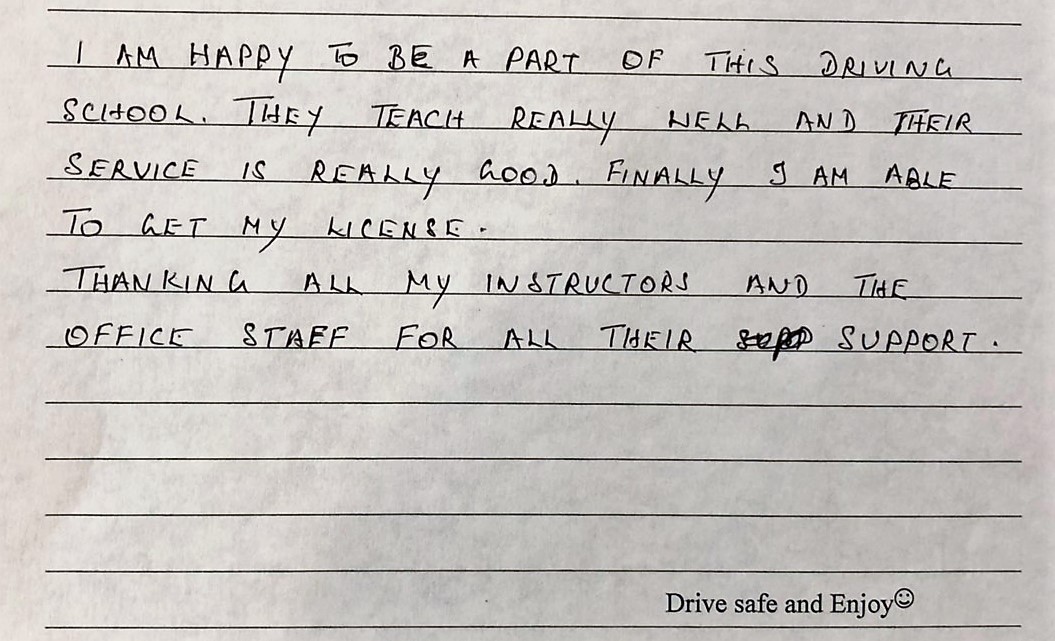 I AM HAPPY TO BE A PART OF THIS DRIVING
SCHOOL. THEY TEACH REALLY WELL AND THEIR
SERVICE IS REALLY GOOD. FINALLY I AM ABLE
TO GET MY LICENSE.
THANKING ALL MY INSTRUCTORS AND THE
OFFICE STAFF FOR ALL THEIR SUPPORT.
Drive safe and Enjoy☺